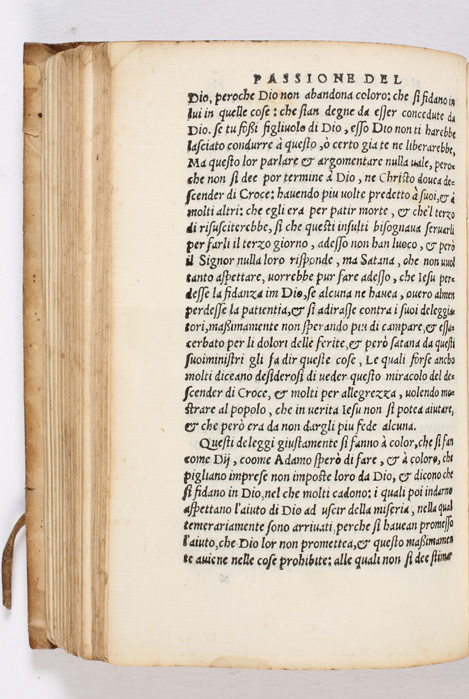 PASSIONE DEL
Dio, peroche Dio non abandona coloro: che si fidano in
lui in quelle cose: che sian degne da esser concedute da
Dio. se tu foßi figliuolo di Dio, esso Dio non ti harebbe
lasciato condurre à questo, ò certo gia te ne liberarebbe,
Ma questo lor parlare & argomentare nulla vale, pero-
che non si dee por termine à Dio, ne Christo douea de-
scender di Croce: hauendo piu volte predetto à suoi, & à
molti altri: che egli era per patir morte, & che'l terzo
di risusciterebbe, sì che questi insulti bisognaua seruarli
per farli il terzo giorno, adesso non han luoco, & però
il Signor nulla loro risponde, ma Satana, che non vuol
tanto aspettare, vorrebbe pur fare adesso, che Iesu per-
desse la fidanza im Dio, se alcuna ne hauea, ouero almen
perdesse la patientia, & si adirasse contra i suoi deleggia-
tori, maßimamente non sperando piu di campare, & essa-
cerbato per li dolori delle ferite, & però satana da questi
suoi ministri gli fa dir queste cose, Le quali forse ancho
molti diceano desiderosi di ueder questo miracolo del de-
scender di Croce, & molti per allegrezza, uolendo mo-
strare al popolo, che in verita Iesu non si potea aiutare,
& che però era da non dargli piu fede alcuna.
Questi deleggi giustamente si fanno à color, che si fan
come Dij, coome Adamo sperò di fare, & à coloro, che
pigliano imprese non imposte loro da Dio, & dicono che
si fidano in Dio, nel che molti cadono; i quali poi indarno
aspettano l'aiuto di Dio ad uscir della miseria, nella qual
temerariamente sono arriuati, perche si hauean promesso
l'aiuto, che Dio lor non promettea, & questo maßimamen
te auiene nelle cose prohibite: alle quali non si dee stimar